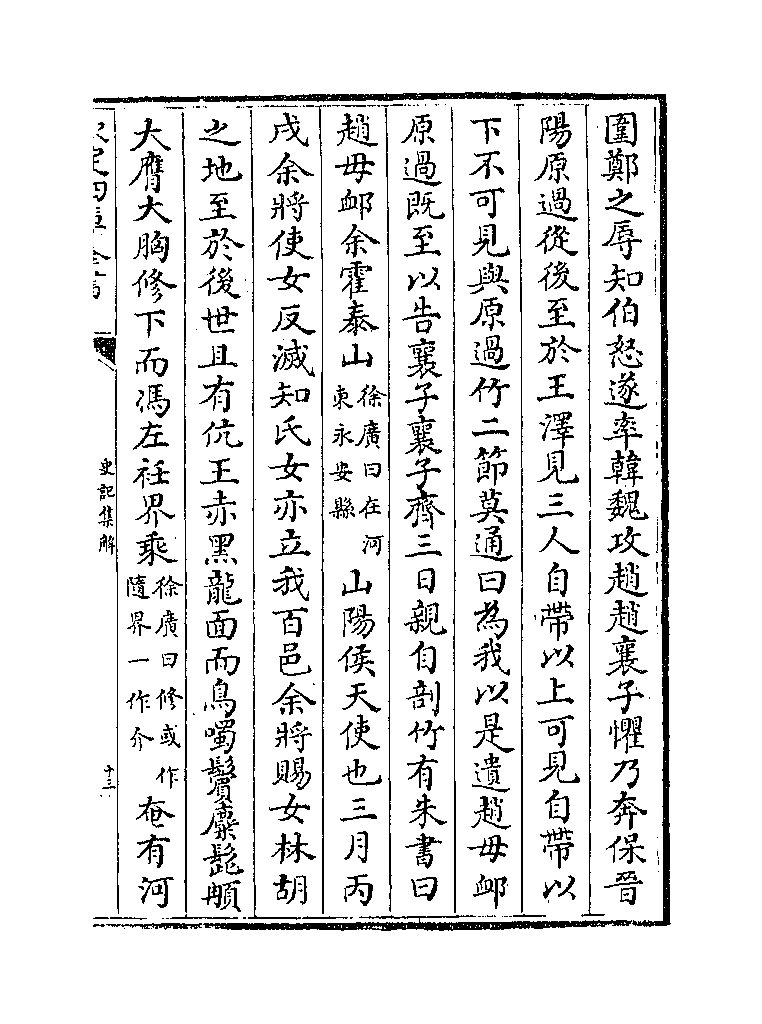 圍鄭之辱知伯怒遂率韓魏攻趙趙襄子懼乃奔保晉
陽原過從後至於王澤見三人自帶以上可見自帶以
下不可見與原過竹二節莫通曰為我以是遺趙毋卹
原過既至以告襄子襄子齊三日親自剖竹有朱書曰
趙毋卹余霍泰山徐廣曰在河東永安縣山陽侯天使也三月丙
戌余將使女反滅知氏女亦立我百邑余將賜女林胡
之地至於後世且有伉王赤黑龍面而鳥噣鬢麋髭䫇
大膺大胸修下而馮左袵界乘徐廣曰修或作隨界一作介奄有河
史記集解
十三